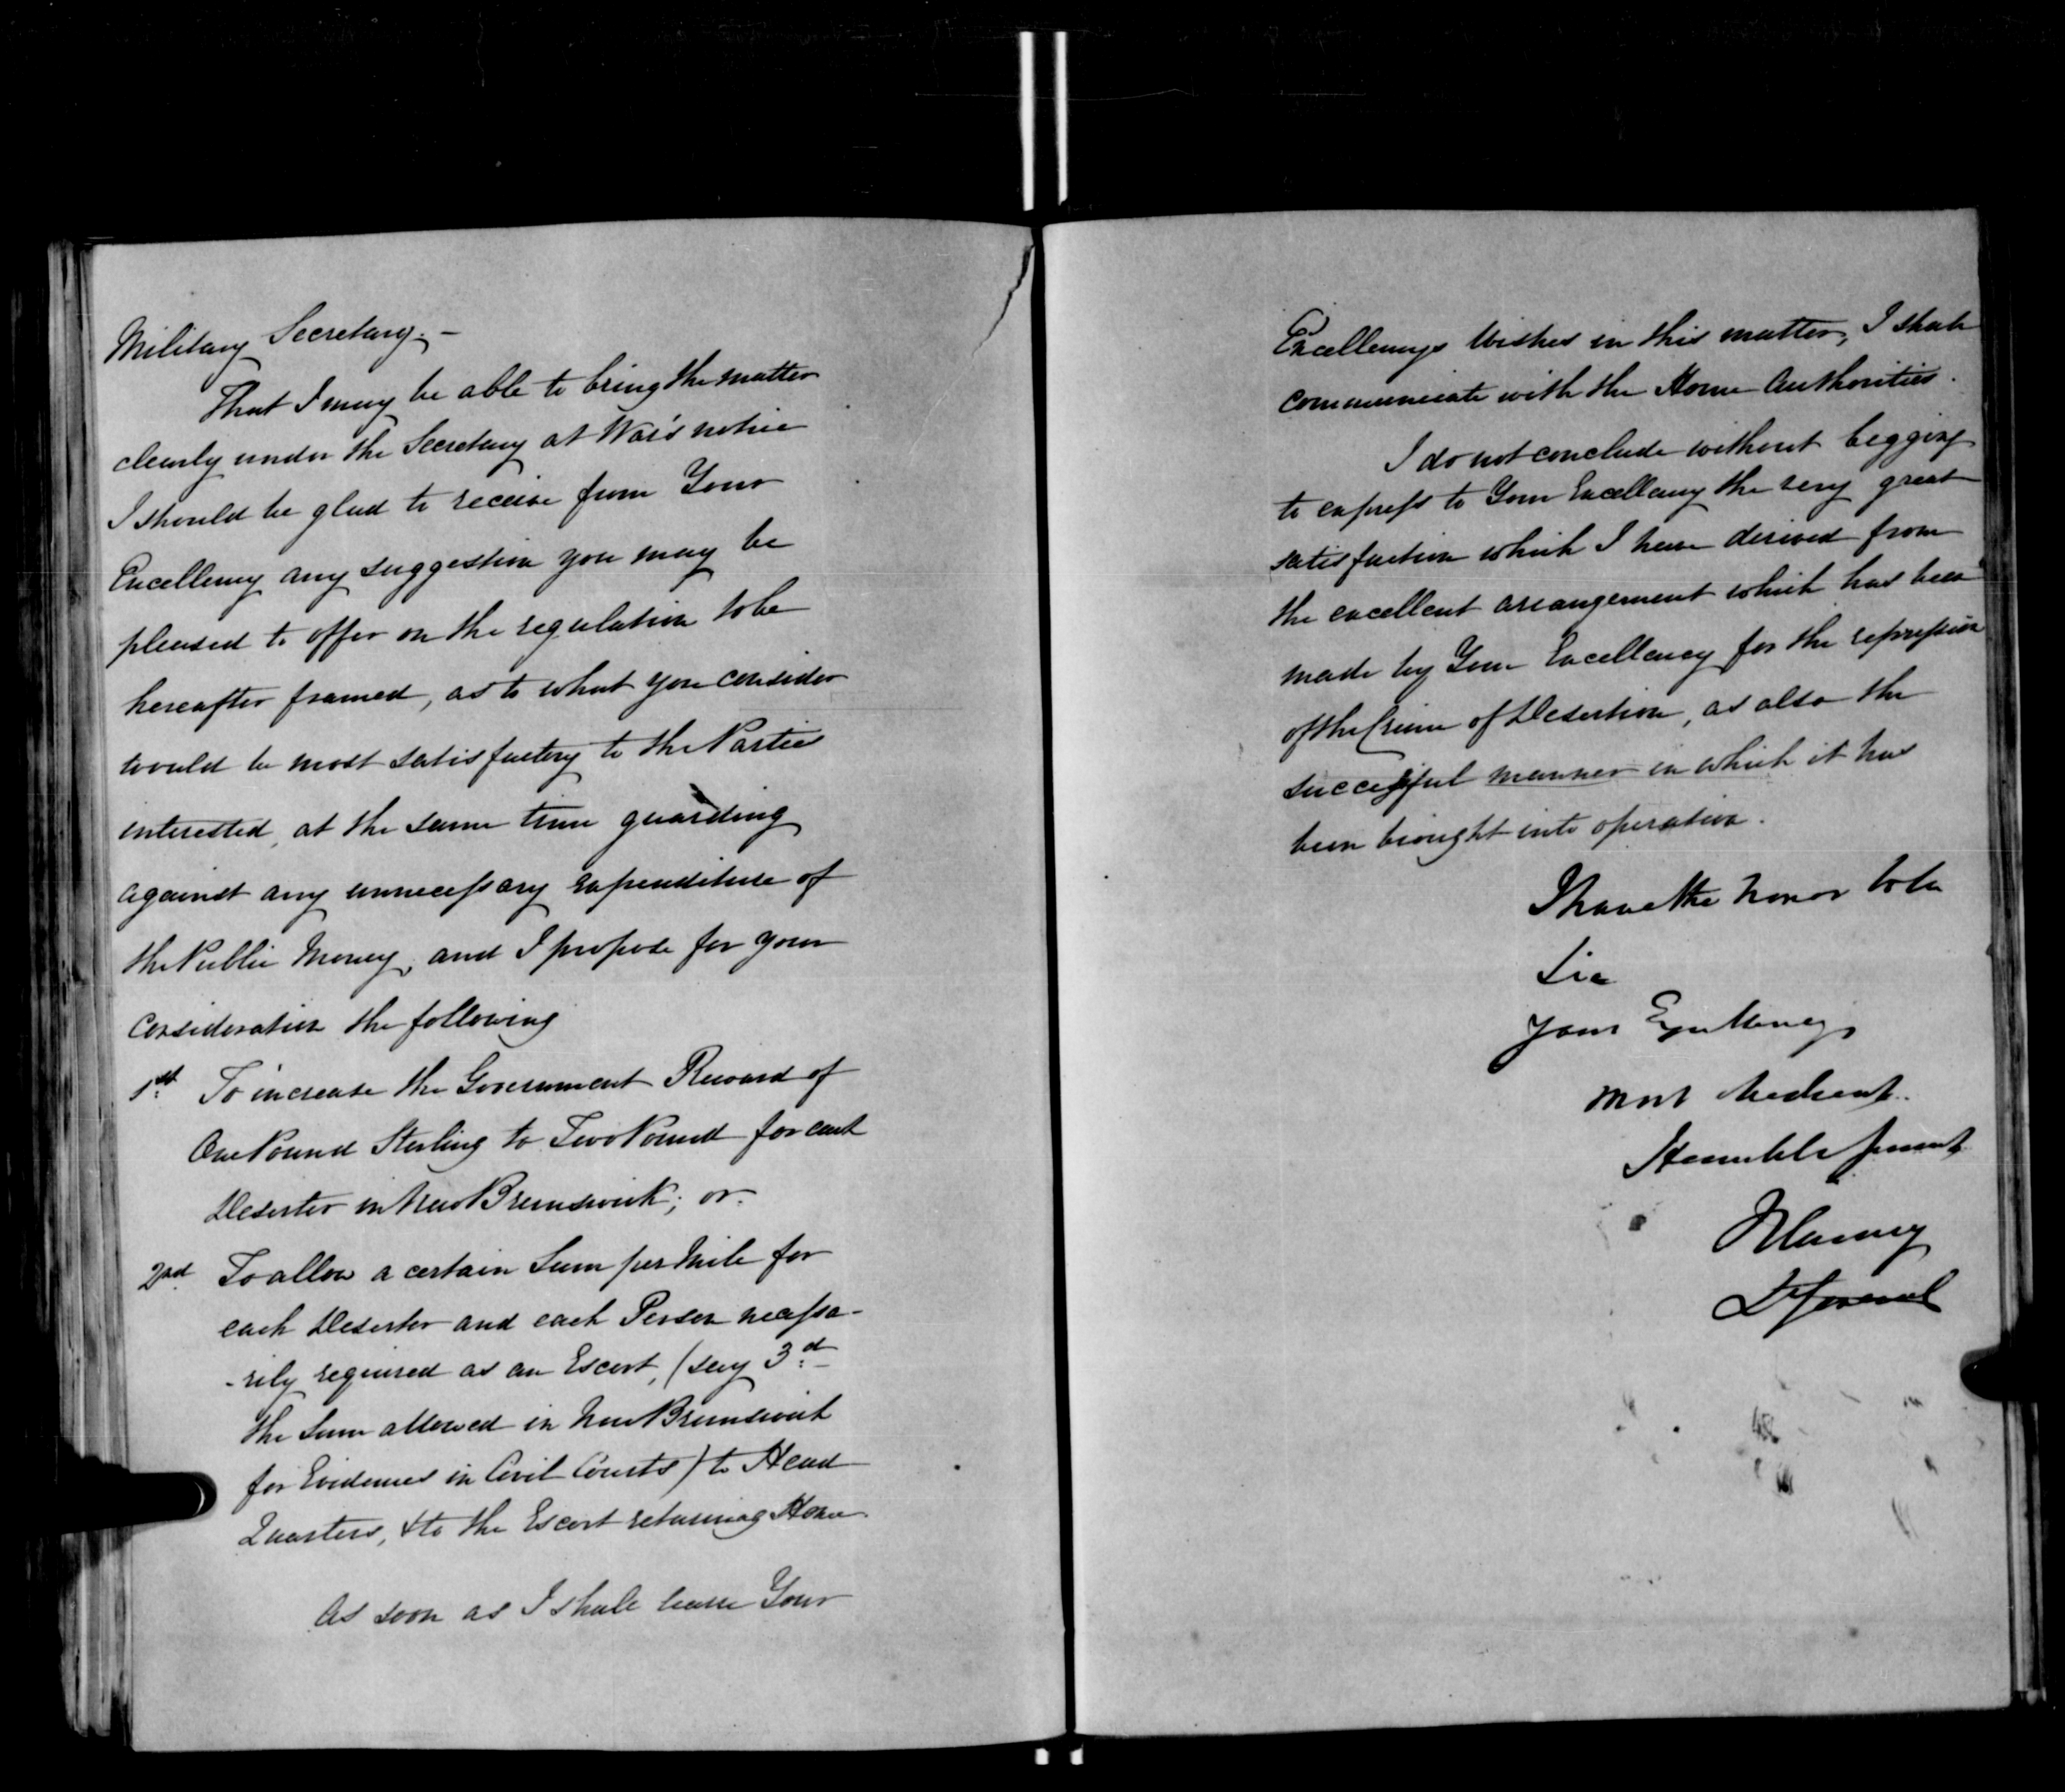 Military Secretary. –
That I may be able to bring the matter
clearly under the Secretary at War's notice
I should be glad to receive from Your
Excellency any suggestion you may be
pleased to offer on the regulation to be
hereafter framed, as to what you consider
would be most satisfactory to the Parties
interested, at the same time guarding
against any unnecessary expenditure of
the Public Money, and I propose for your
consideration the following
1st. To increase the Government Reward of
One Pound Sterling to Two Pound for each
Deserter in New Brunswick; or.
2nd. To allow a certain Sum per Mile for
each Deserter and each Person necessa-
-rily required as an Escort, (say 3.d
the Sum allowed in New Brunswick
for Evidences in Civil Courts) to Head
Quarters, & to the Escort returning Home
As soon as I shall learn Your
Excellency's Wishes in this matter, I shall
communicate with the Home Authorities.
I do not conclude without begging
to express to Your Excellency the very great
satisfaction which I have derived from
the excellent arrangement which has been
made by Your Excellency for the repression
of the Crime of Desertion, as also the
successful manner in which it has
been brought into operation.
I have the honor to be
Sir
Your Excellency's
Most Obedient
Humble Servant
JHarvey
LtGeneral